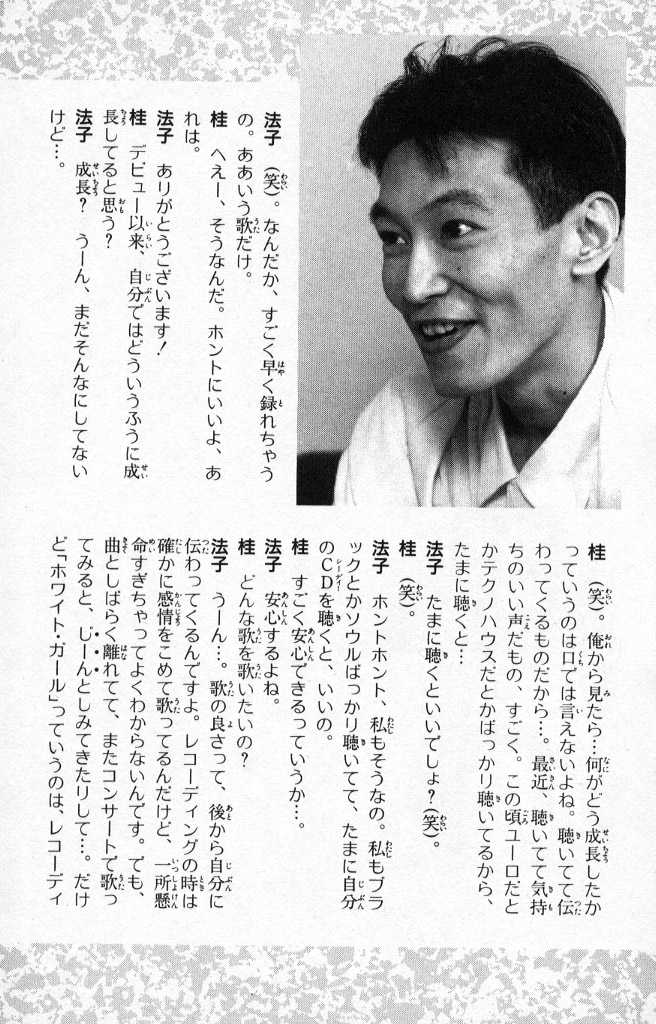 法子　（笑）。なんだか、すごく早く録れちゃう
の。ああいう歌だけ。
桂　へえー、そうなんだ。ホントにいいよ、あ
れは。
法子　ありがとうございます！
桂　デビュー以来、自分ではどういうふうに成
長してると思う？
法子　成長？　うーん、まだそんなにしてない
けど…。
桂　（笑）。俺から見たら…何がどう成長したか
っていうのは口では言えないよね。聴いてて伝
わってくるものだから…。最近、聴いてて気持
ちのいい声だもの、すごく。この頃ユーロだと
かテクノハウスだとかばっかり聴いてるから、
たまに聴くと…
法子　たまに聴くといいでしょ？（笑）。
桂　（笑）。
法子　ホントホント、私もそうなの。私もブラ
ックとかソウルばっかり聴いてて、たまに自分
のCDを聴くと、いいの。
桂　すごく安心できるっていうか…。
法子　安心するよね。
桂　どんな歌を歌いたいの？
法子　うーん…。歌の良さって、後から自分に
伝わってくるんですよ。レコーディングの時は
確かに感情をこめて歌ってるんだけど、一所懸
命すぎちゃってよくわからないんです。でも、
曲としばらく離れてて、またコンサートで歌っ
てみると、じーんとしみてきたりして…。だけ
ど「ホワイト・ガール」っていうのは、レコーディ